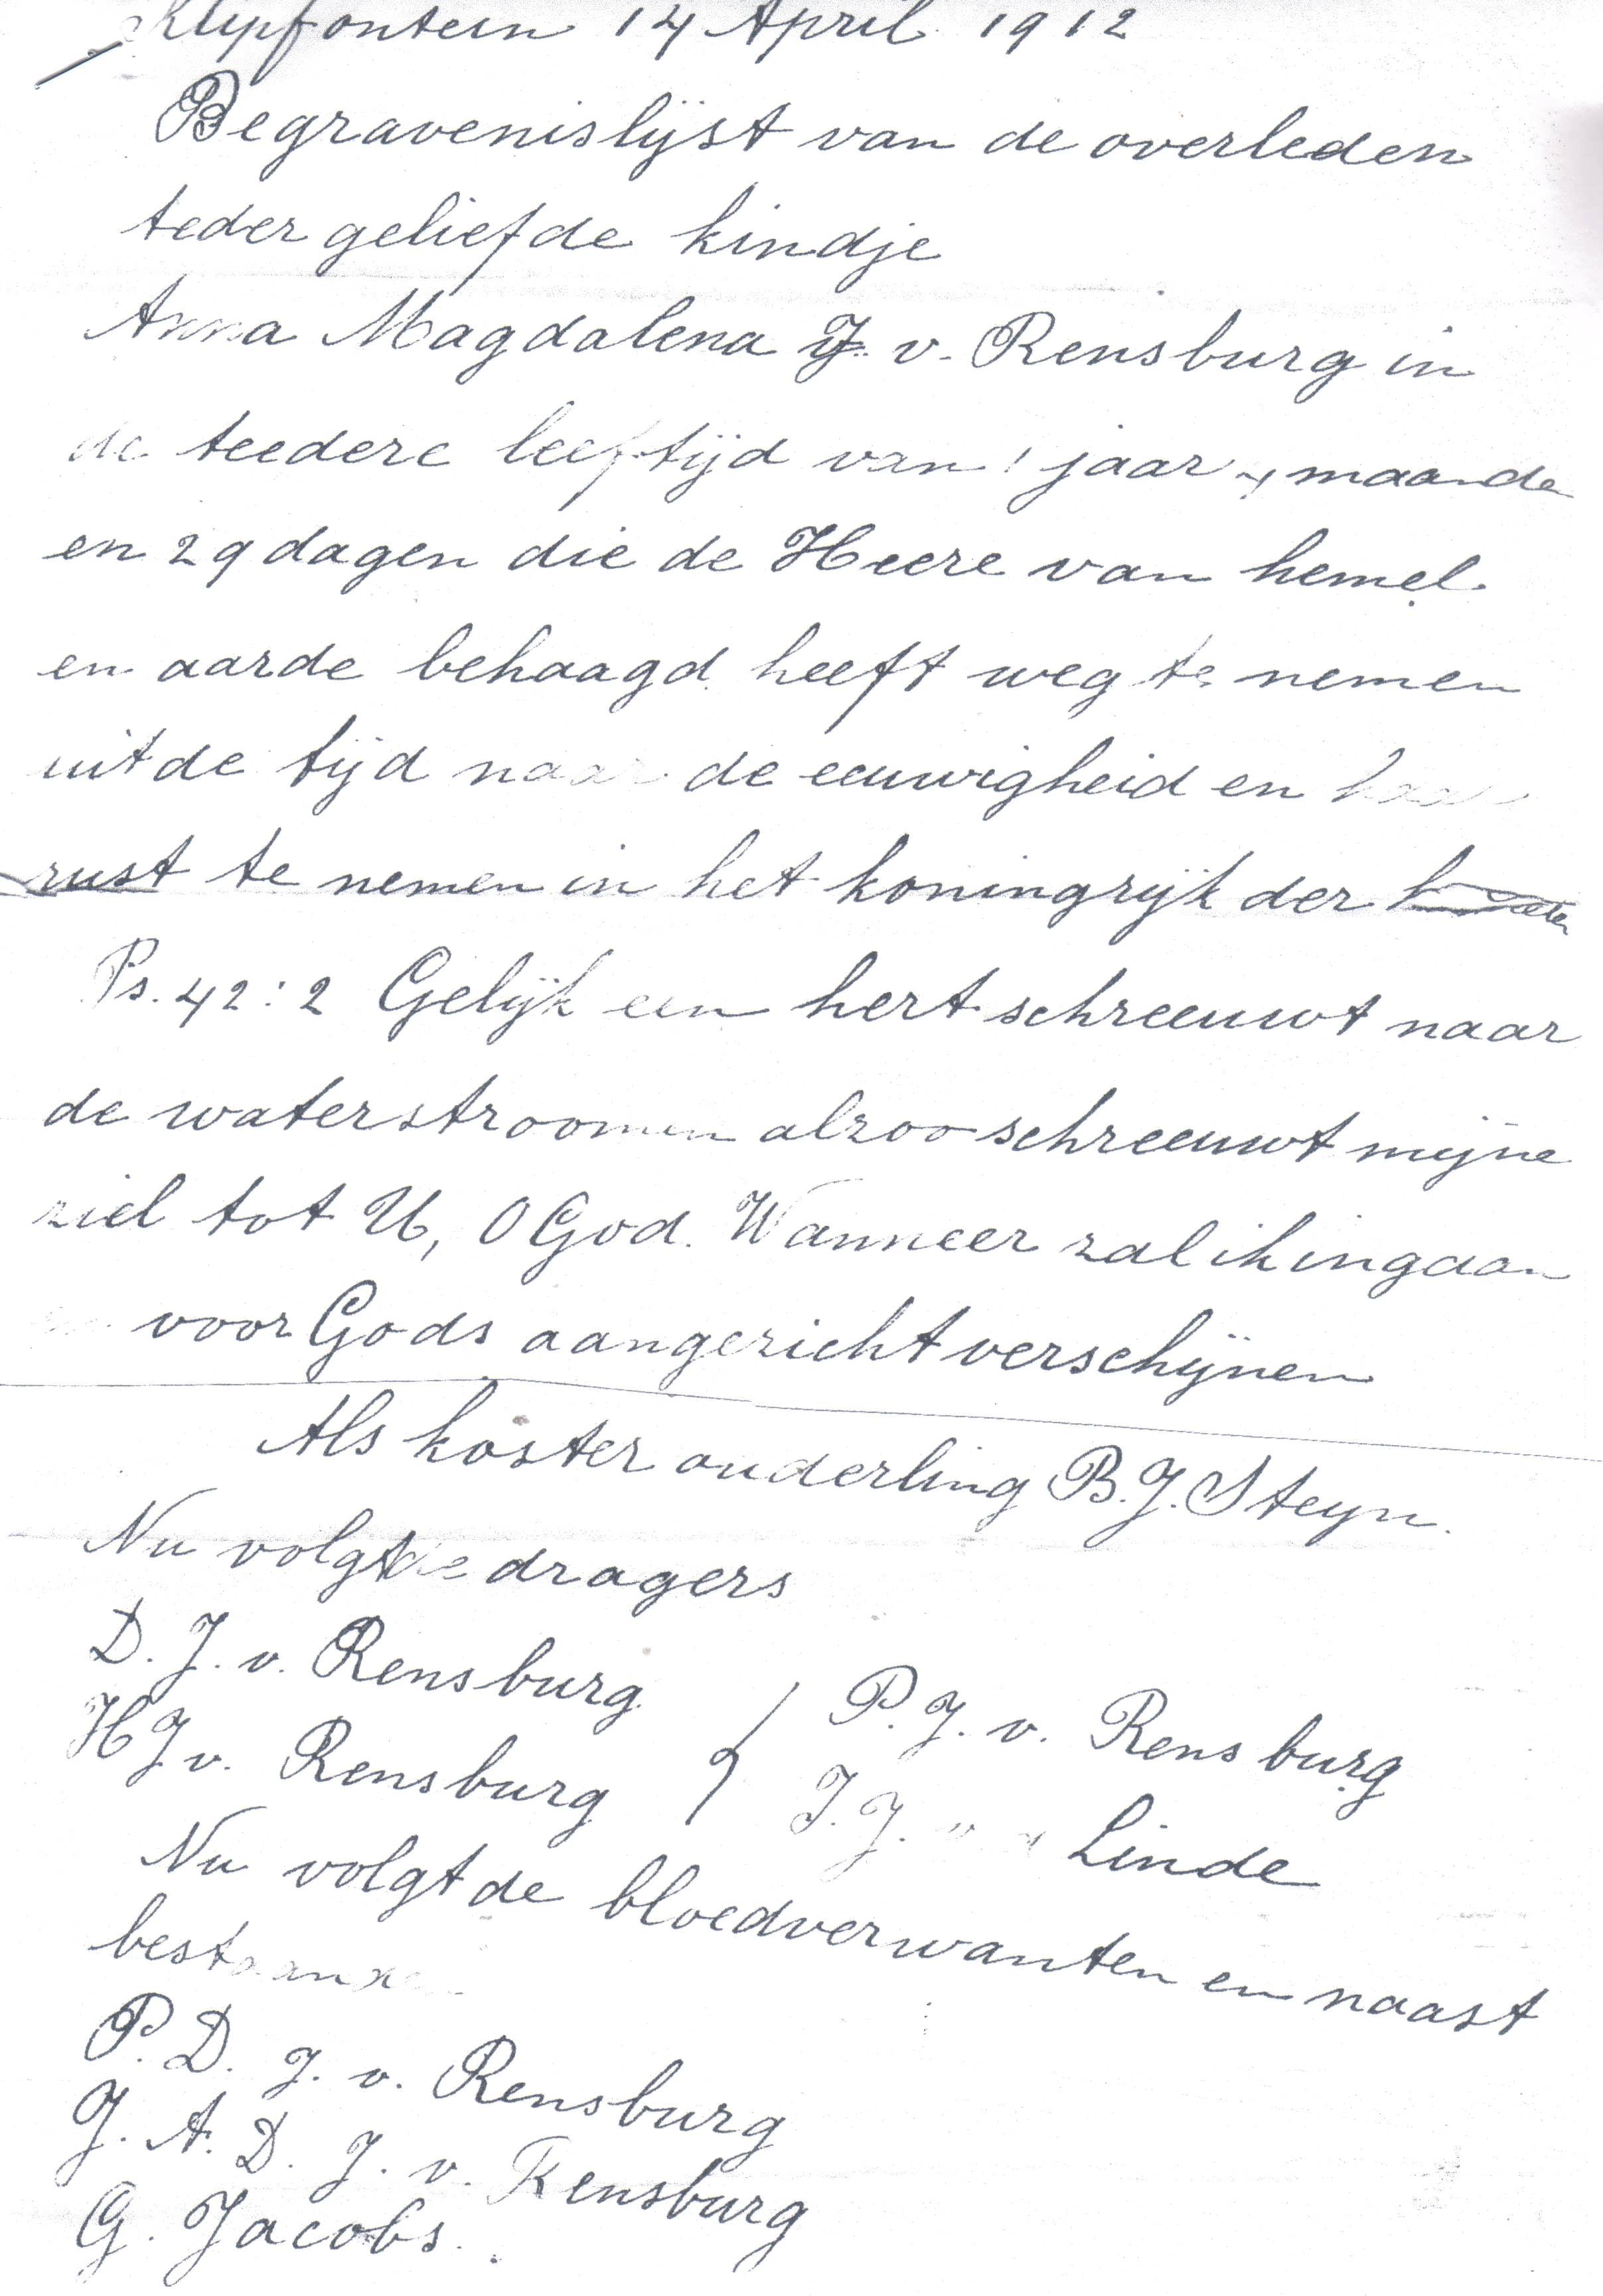 Klipfontein 14 April 1912
Begravenislijst van de overleden
teder geliefde kindje
Anna Magdalena J. v. Rensburg in
de teedere leeftijd van 1 jaar maanden
en 29 dagen die de Heere van hemel
en aarde behaagd heeft weg te nemen
uit de tijd naar de eeuwigheid en haar
rust te nemen in het koningrijk der
Ps. 42:2 Gelijk een hert schreeuwt naar
de waterstroomen alzoo schreeuwt mijne
ziel tot U, O God. Wanneer zal ik ingaan
voor Gods aangezicht verschijnen
Als koster ouderling B.J. Steyn.
Nu volgt de dragers
D. J. v. Rensburg
H J v. Rensburg
P. J. v. Rensburg
J. J. v d Linde
Nu volgt de bloedverwanten en naast
bestaande
P. D. J. v. Rensburg
J. A. D. J. v. Rensburg
G. Jacobs.